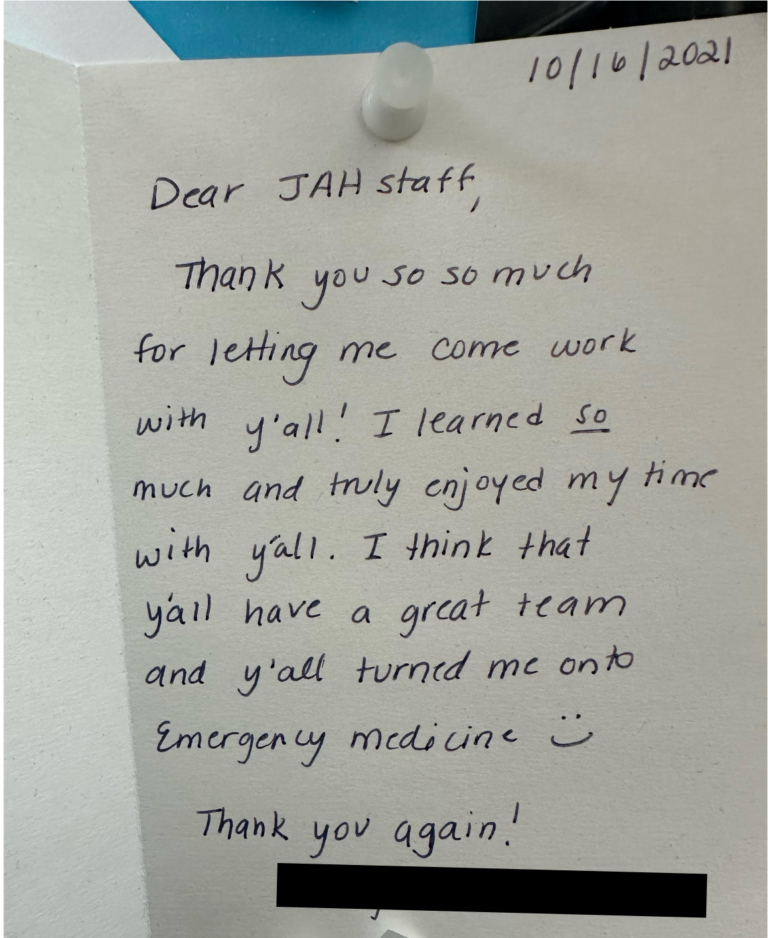 10/16/2021
Dear JAH staff,
Thank you so so much
for letting me come work
with y'all! I learned so
much and truly enjoyed my time
with y'all. I think that
y'all have a great team
and y'all turned me onto
Emergency medicine :)
Thank you again!